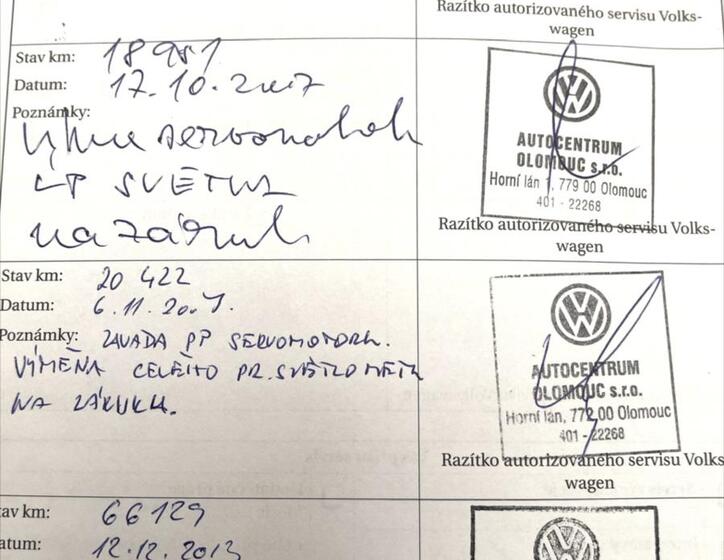 Razítko autorizovaného servisu Volks-
wagen
Stav km: 18981
Datum: 17.10.2007
Poznámky:
LP SVĚTLA
na záruk
AUTOCENTRUM
OLOMOUC s.r.o.
Horní lán 1, 779 00 Olomouc
401 - 22268
Razítko autorizovaného servisu Volks-
wagen
Stav km: 20 422
Datum: 6.11.2007.
Poznámky: ZAVADA PP SERVOMOTORU.
VÝMĚNA CELÉHO PR. SVĚTLOMETU
NA ZÁRUKU.
AUTOCENTRUM
OLOMOUC s.r.o.
Horní lán, 772 00 Olomouc
401 - 22268
Razítko autorizovaného servisu Volks-
wagen
tav km: 66129
atum: 12.12.2013